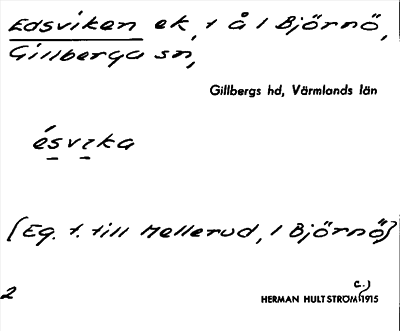 Edsviken ek, t å 1 Björnö,
Gillberga sn,
Gillbergs hd, Värmlands län
ésvıka
[Eg. t. till Mellerud, 1 Björnö]
c.)
2
HERMAN HULTSTRÖM 1915